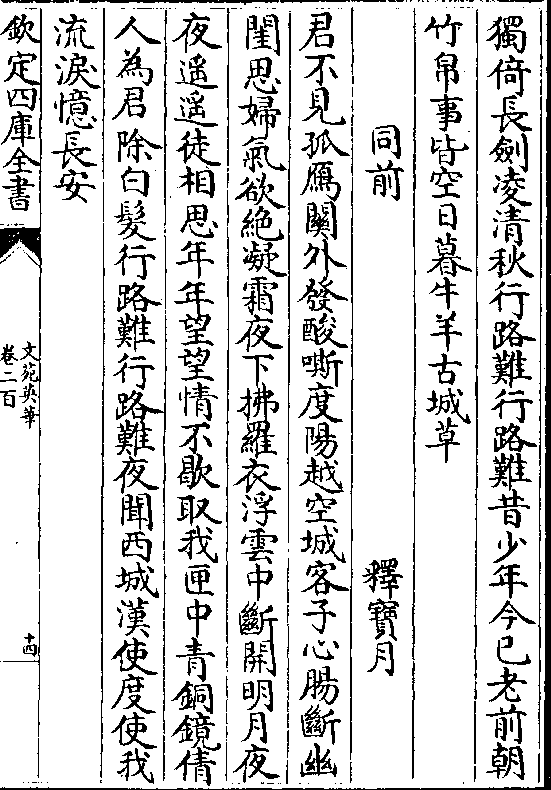 獨倚長劍凌清秋行路難行路難昔少年今已老前朝
竹帛事皆空日暮牛羊古城草
同前 釋寶月
君不見孤鴈關外發酸嘶度陽越空城客子心腸斷幽
閨思婦氣欲絶凝霜夜下拂羅衣浮雲中斷開明月夜
夜遥遥徒相思年年望望情不歇取我匣中青銅鏡倩
人為君除白髮行路難行路難夜聞西城漢使度使我
流淚憶長安
欽定四庫全書
文苑英華
卷二百
十四